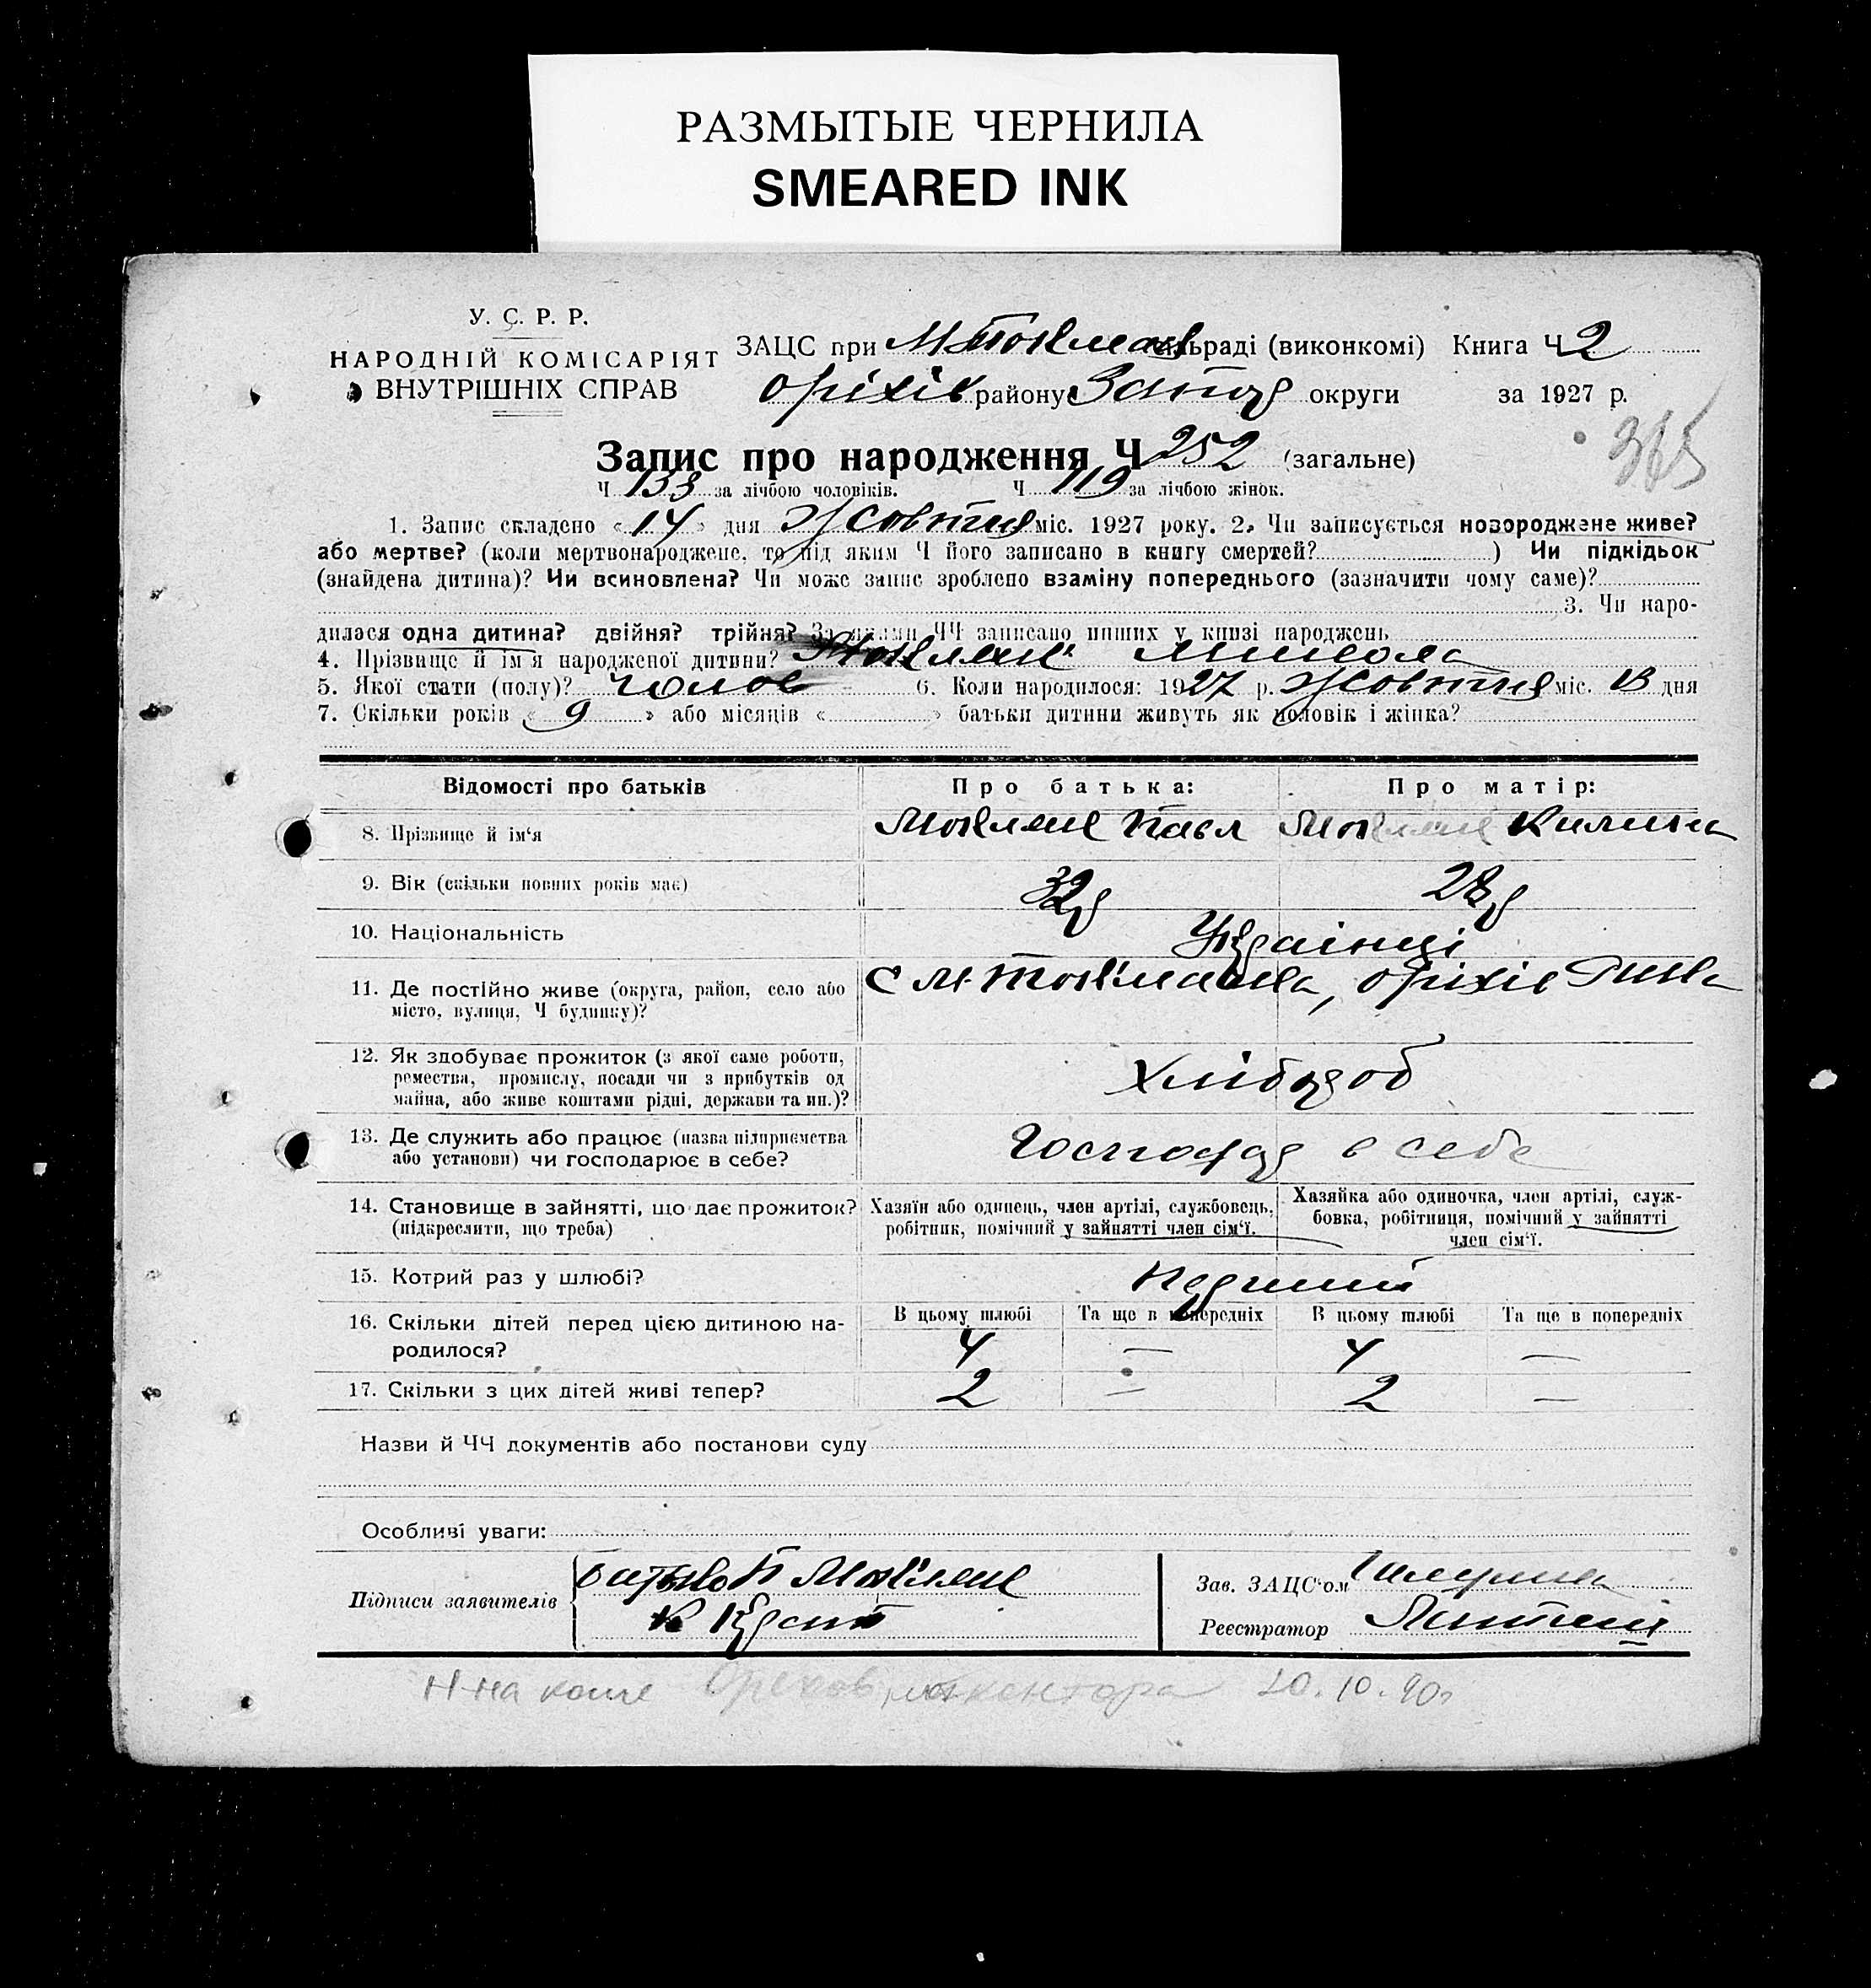 РАЗМЫТЫЕ ЧЕРНИЛА
SMEARED INK
У. С. Р. Р.
НАРОДНІЙ КОМІСАРІЯТ
ВНУТРІШНІХ СПРАВ
ЗАЦС при М Токмач сільраді (виконкомі) Книга Ч 2
Оріхів району Запор округи за 1927 р.
365
Запис про народження Ч 252 (загальне)
Ч 133 за лічбою чоловіків. Ч 119 за лічбою жінок.
1. Запис складено «14» дня Жовтня міс. 1927 року. 2. Чи записується новороджене живе?
або мертве? (коли мертвонароджене, то під яким Ч його записано в книгу смертей? ) Чи підкідьок
(знайдена дитина)? Чи всиновлена? Чи може запис зроблено взаміну попереднього (зазначити чому саме)?
3. Чи наро-
дилася одна дитина? двійня? трійня? За якими ЧЧ записано инших у книзі народжень
4. Прізвище й ім'я народженої дитини? Микола
5. Якої стати (полу)? чолов 6. Коли народилося: 1927 р. Жовтня міс. 13 дня
7. Скільки років «9» або місяців « » батьки дитини живуть як чоловік і жінка?
Відомості про батьків
Про батька:
Про матір:
8. Прізвище й ім'я
Павл
Килина
9. Вік (скільки повних років має)
32р
28р
10. Національність
Українці
11. Де постійно живе (округа, район, село або
місто, вулиця, Ч будинку)?
С М-Токмачка, Оріхів р-на
12. Як здобуває прожиток (з якої саме роботи,
ремества, промислу, посади чи з прибутків од
майна, або живе коштами рідні, держави та ин.)?
Хлібороб
13. Де служить або працює (назва підприємства
або установи) чи господарює в себе?
Господар в себе
14. Становище в зайнятті, що дає прожиток?
(підкреслити, що треба)
Хазяїн або одинець, член артілі, службовець,
робітник, помічний у зайнятті член сім'ї.
Хазяйка або одиночка, член артілі, служ-
бовка, робітниця, помічний у зайнятті
член сім'ї.
15. Котрий раз у шлюбі?
Перший
16. Скільки дітей перед цією дитиною на-
родилося?
В цьому шлюбі Та ще в попередніх В цьому шлюбі Та ще в попередніх
4 — 4 —
17. Скільки з цих дітей живі тепер?
2 — 2 —
Назви й ЧЧ документів або постанови суду
Особливі уваги:
Підписи заявителів
батько П
Зав. ЗАЦС'ом
Реєстратор
Н-на копие Орехов нотконтора 20.10.90г